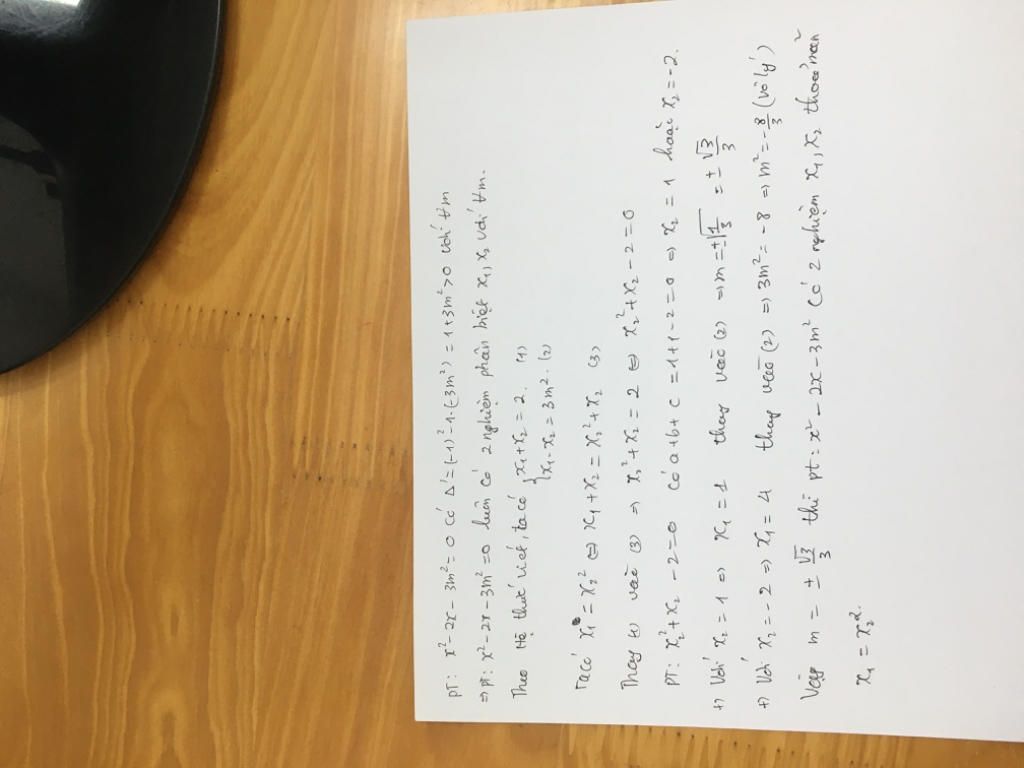 PT: x² - 2x - 3m² = 0 có Δ' = (-1)² - 1.(-3m²) = 1 + 3m² > 0 với ∀m
⇒ pt: x² - 2x - 3m² = 0 luôn có 2 nghiệm phân biệt x₁, x₂ với ∀m.
Theo Hệ thức viét, ta có { x₁ + x₂ = 2. (1)
x₁ . x₂ = 3m². (2)
Ta có x₁ = x₂² ⇔ x₁ + x₂ = x₂² + x₂ (3)
Thay (1) vào (3) ⇒ x₂² + x₂ = 2 ⇔ x₂² + x₂ - 2 = 0
PT: x₂² + x₂ - 2 = 0 Có a + b + c = 1 + 1 - 2 = 0 ⇒ x₂ = 1 hoặc x₂ = -2.
+) Với x₂ = 1 ⇒ x₁ = 1 thay vào (2) ⇒ m = ±√(1/3) = ± √3/3
+) Với x₂ = -2 ⇒ x₁ = 4 thay vào (2) ⇒ 3m² = -8 ⇒ m² = -8/3 (vô lý)
Vậy m = ± √3/3 thì pt: x² - 2x - 3m² Có 2 nghiệm x₁, x₂ thoả mãn
x₁ = x₂².